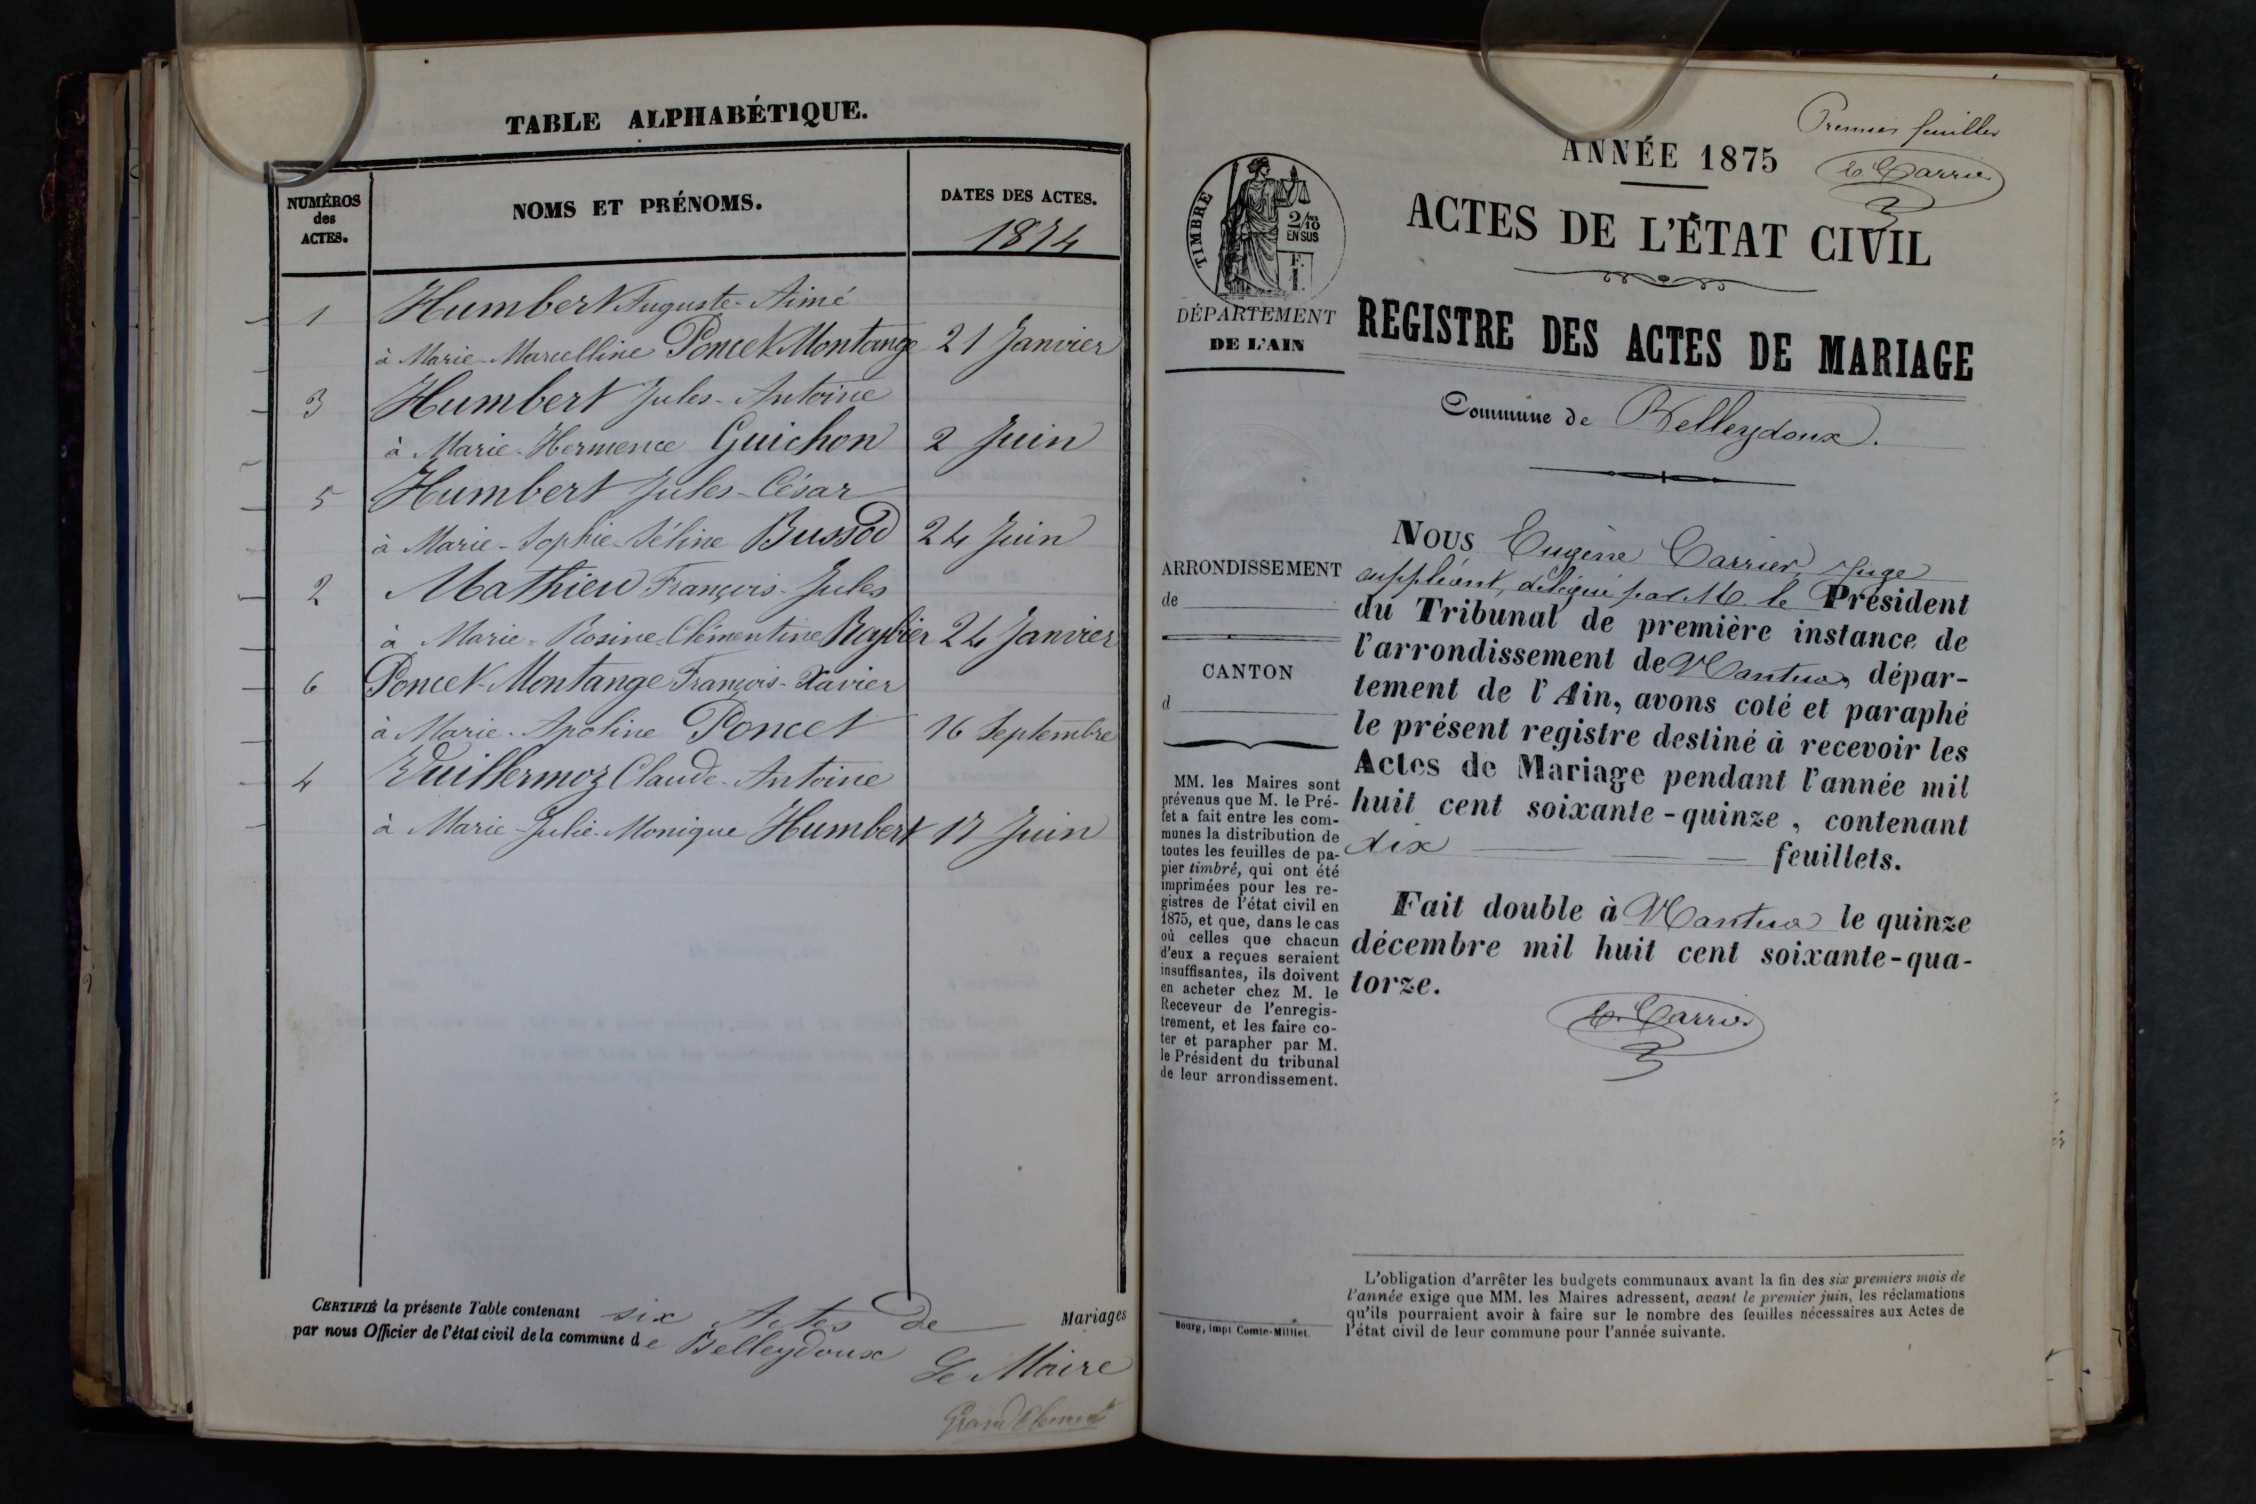 TABLE ALPHABÉTIQUE.
NUMÉROS
des
ACTES.
NOMS ET PRÉNOMS.
DATES DES ACTES.
1874
1 Humbert Auguste-Aimé
à Marie-Marcelline Poncet-Montange 21 Janvier
3 Humbert Jules-Antoine
à Marie-Hermence Guichon 2 Juin
5 Humbert Jules-César
à Marie-Sophie-Séline Bussod 24 Juin
2 Mathieu François-Jules
à Marie-Rosine-Clémentine 24 Janvier
6 Poncet-Montange François-Xavier
à Marie-Apoline Poncet 16 Septembre
4 Vuillermoz Claude-Antoine
à Marie-Julie-Monique Humbert 17 Juin
CERTIFIÉ la présente Table contenant six Actes de Mariages
par nous Officier de l'état civil de la commune de Belleydoux
Le Maire
Premier feuillet
E Carrier
ANNÉE 1875
ACTES DE L'ÉTAT CIVIL
TIMBRE
2/10
EN SUS
F.
1
DÉPARTEMENT
DE L'AIN
REGISTRE DES ACTES DE MARIAGE
Commune de Belleydoux.
ARRONDISSEMENT
de
CANTON
d
MM. les Maires sont
prévenus que M. le Pré-
fet a fait entre les com-
munes la distribution de
toutes les feuilles de pa-
pier timbré, qui ont été
imprimées pour les re-
gistres de l'état civil en
1875, et que, dans le cas
où celles que chacun
d'eux a reçues seraient
insuffisantes, ils doivent
en acheter chez M. le
Receveur de l'enregis-
trement, et les faire co-
ter et parapher par M.
le Président du tribunal
de leur arrondissement.
Nous Eugène Carrier, Juge
suppléant, délégué par M. le Président
du Tribunal de première instance de
l'arrondissement de Nantua, dépar-
tement de l'Ain, avons coté et paraphé
le présent registre destiné à recevoir les
Actes de Mariage pendant l'année mil
huit cent soixante-quinze, contenant
dix feuillets.
Fait double à Nantua le quinze
décembre mil huit cent soixante-qua-
torze.
E. Carrier
L'obligation d'arrêter les budgets communaux avant la fin des six premiers mois de
l'année exige que MM. les Maires adressent, avant le premier juin, les réclamations
qu'ils pourraient avoir à faire sur le nombre des feuilles nécessaires aux Actes de
l'état civil de leur commune pour l'année suivante.
Bourg, impr Comte-Milliet.